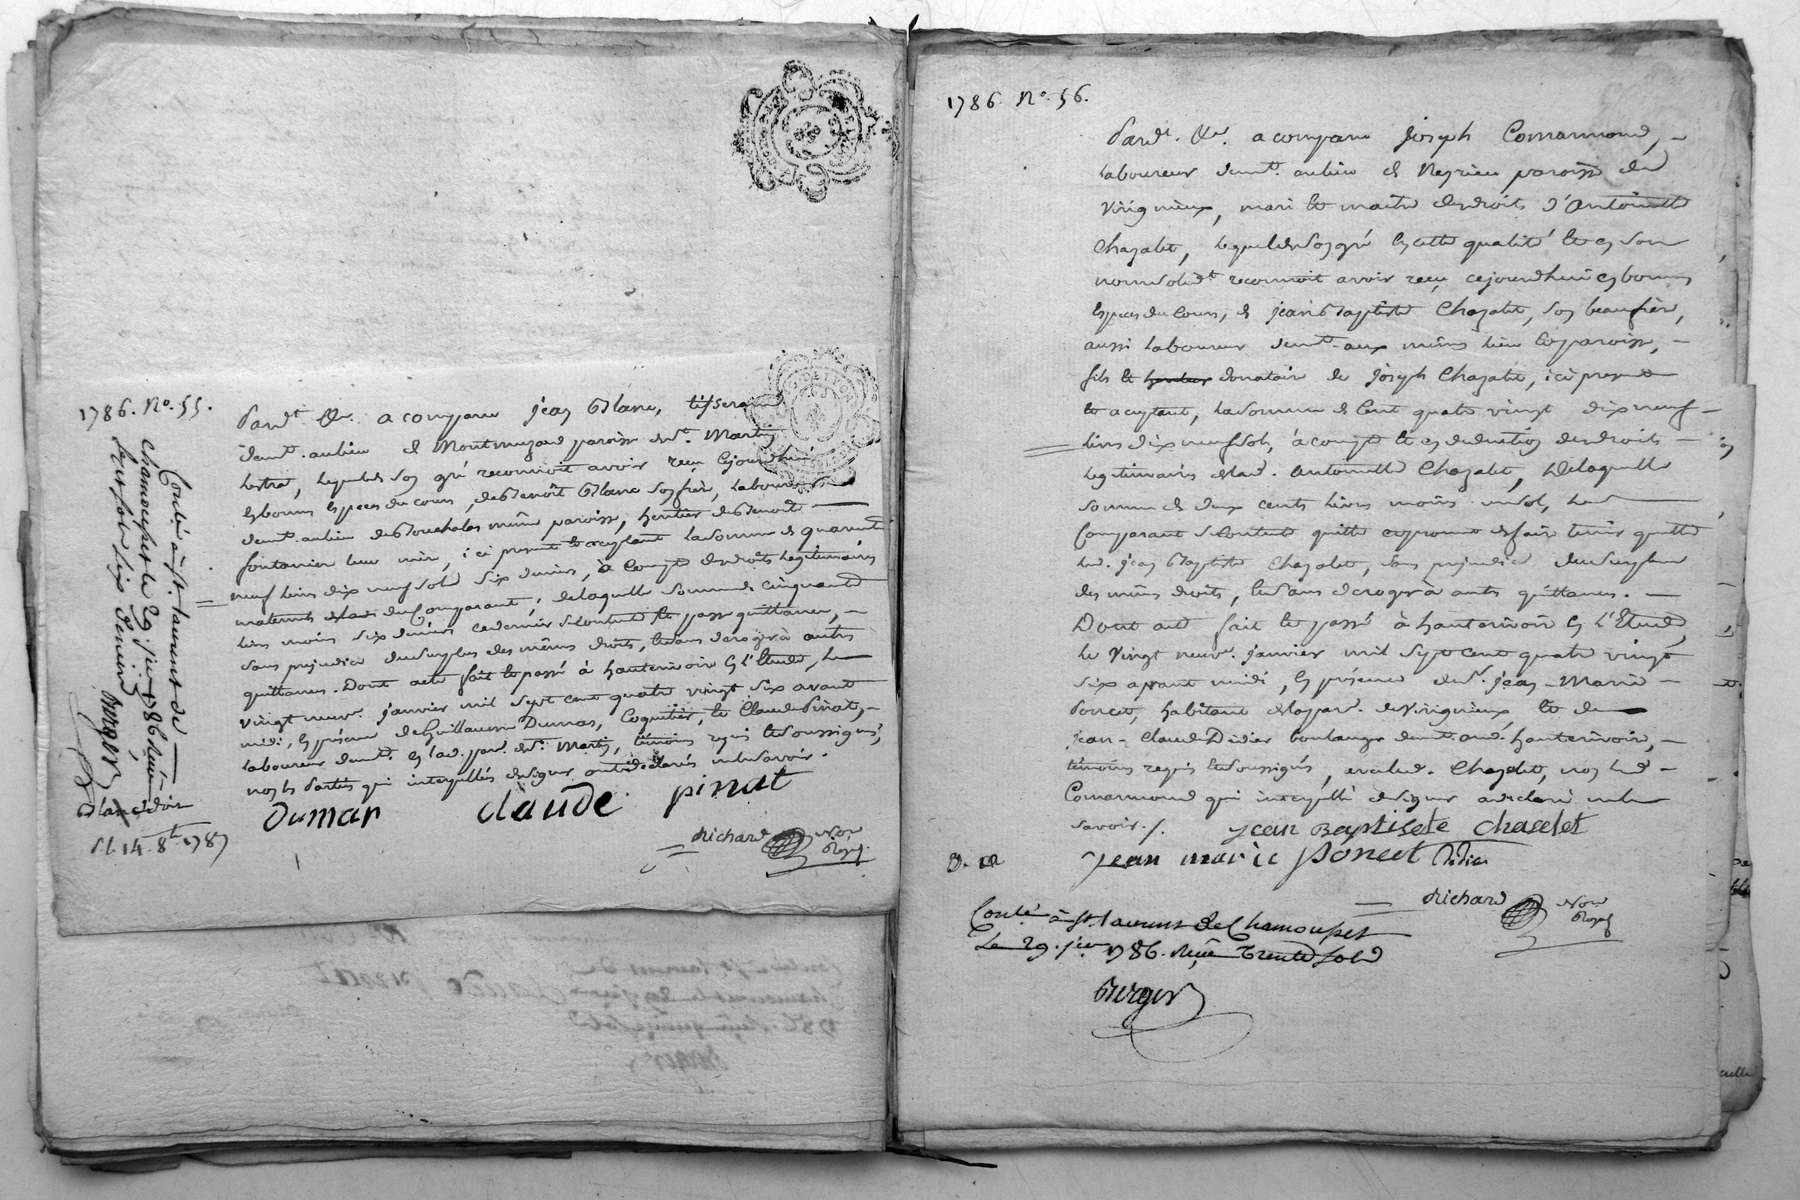 1786. No. 55.
Pard.t &a. a comparu jean Blanc, tisserand
demt. au lieu de Montmezard paroisse de st. Martin
lestra, lequel de son gré reconnoit avoir reçu cejourdhui
en bonnes especes du cours, de Benoît Blanc son frère, laboureur
demt. au lieu de même paroisse, heritier de Benoite
fontanier leur mère, ici present et acceptant la somme de quarante
neuf livres dix neuf sols six deniers, à compte des droits legitimaires
maternels dudit comparant, de laquelle somme de cinquante
livres moins six deniers ce dernier se contente et passe quittance,
sans prejudice du surplus des mêmes droits, et sans deroger à autres
quittances. Dont acte fait et passé à hauterivoire en l'Etude, le
vingt neuf. janvier mil sept cent quatre vingt six avant
midi, en présence de Guillaume Dumas, Coquetier, et Claude Pinat,
laboureur demt. en lad. par. de st. Martin, témoins requis et soussignés,
non les parties qui interpellées de signer ont déclaré ne le savoir.
Dumas Claude pinat
Richard Nore Royal
Conlé à st. laurent de
chamousset le 29 jer 1786. Reçu
sols six deniers
Berger
le 14. 8bre 1787
1786. No. 56.
Pard.t &a. a comparu joseph Comarmond,
laboureur demt. au lieu de Neyrieu paroisse de
Virigneux, mari et maitre des droits d'Antoinette
Chazalet, lequel de son gré en cette qualité et en son
nom solidt. reconnoit avoir reçu cejourdhui en bonnes
especes du cours, de jean Baptiste Chazalet, son beaufrère,
aussi laboureur demt. aux mêmes lieu et paroisse,
fils et donataire de joseph Chazalet, ici present
et acceptant, la somme de cent quatre vingt dix neuf
livres dix neuf sols, à compte et en deduction des droits
legitimaires de lad. Antoinette Chazalet, de laquelle
somme de deux cents livres moins un sol, led.
Comparant se contente quitte et promet de faire tenir quitte
led. jean Baptiste Chazalet, sans prejudice du surplus
des mêmes droits, et sans deroger à autres quittances.
Dont acte fait et passé à hauterivoire en l'Etude,
le vingt neuf. janvier mil sept cent quatre vingt
six avant midi, en présence de sr. jean Marie
Poncet, habitant de la par. de Virigneux et de
jean Claude Didier boulanger demt. aud. hauterivoire,
témoins requis et soussignés, avec led. Chazalet, non led.
Comarmond qui interpellé de signer a déclaré ne le
savoir.
jean Baptisete Chaselet
jean marie poncet Didier
Richard Nore Royal
Conlé à st. laurent de Chamousset
Le 29. jer. 1786. Reçu trente sols
Berger